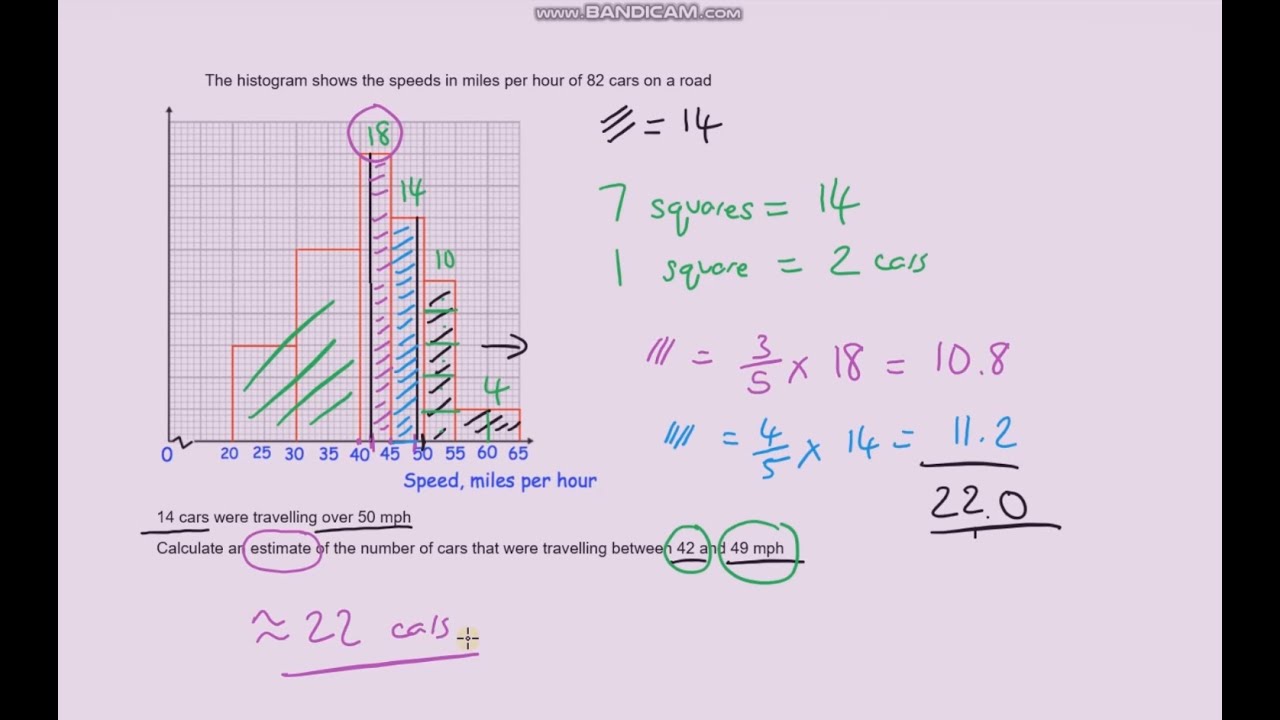 www.BANDICAM.com
The histogram shows the speeds in miles per hour of 82 cars on a road
18
14
10
4
0 20 25 30 35 40 45 50 55 60 65
Speed, miles per hour
= 14
7 squares = 14
1 square = 2 cars
= 3/5 × 18 = 10.8
= 4/5 × 14 = 11.2
22.0
14 cars were travelling over 50 mph
Calculate an estimate of the number of cars that were travelling between 42 and 49 mph
≈ 22 cars